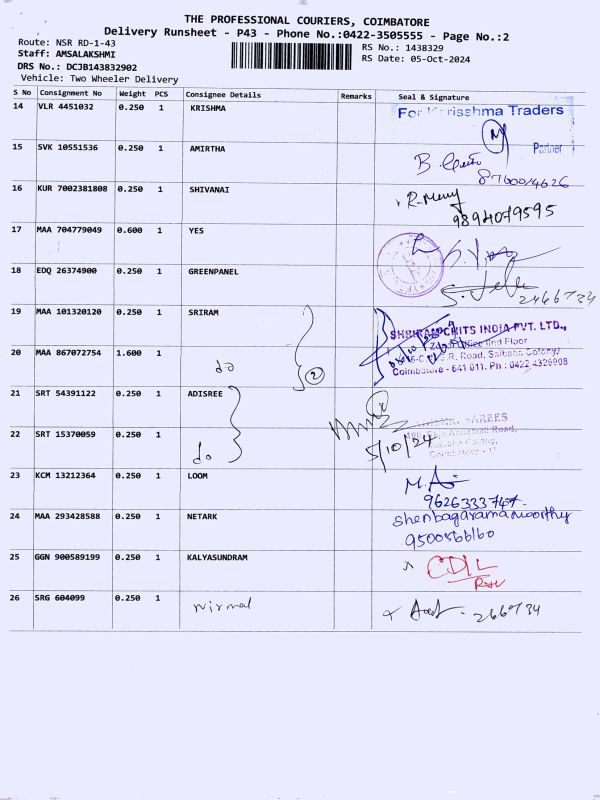 THE PROFESSIONAL COURIERS, COIMBATORE
Delivery Runsheet - P43 - Phone No.:0422-3505555 - Page No.:2
Route: NSR RD-1-43
RS No.: 1438329
Staff: AMSALAKSHMI
RS Date: 05-Oct-2024
DRS No.: DCJB143832902
Vehicle: Two Wheeler Delivery
S No Consignment No Weight PCS Consignee Details Remarks Seal & Signature
14 VLR 4451032 0.250 1 KRISHMA
Traders
Partner
15 SVK 10551536 0.250 1 AMIRTHA
16 KUR 7002381808 0.250 1 SHIVANAI
9894079595
17 MAA 704779049 0.600 1 YES
18 EDQ 26374900 0.250 1 GREENPANEL
2466734
19 MAA 101320120 0.250 1 SRIRAM
SHRIRAM CHITS INDIA PVT. LTD.,
Floor
R. Road, Saibaba Colony,
Coimbatore - 641 011. Ph : 0422 4326908
20 MAA 867072754 1.600 1 do 2
21 SRT 54391122 0.250 1 ADISREE
22 SRT 15370059 0.250 1 do
5/10/24
23 KCM 13212364 0.250 1 LOOM
9626333747
24 MAA 293428588 0.250 1 NETARK shenbagaramamoorthy
9500566160
25 GGN 900589199 0.250 1 KALYASUNDRAM
26 SRG 604099 0.250 1 Nirmal
266734